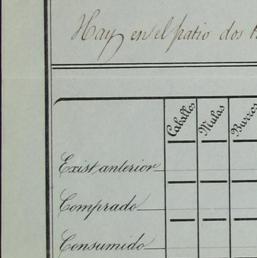 Hay en el patio dos
Caballos Mulas Burros
Exist anterior
Comprado
Consumido